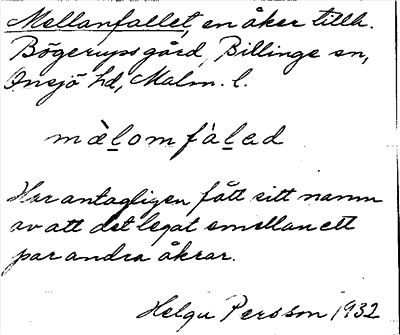 Mellanfallet, en åker tillh.
Bögerups gård, Billinge sn,
Onsjö hd, Malm. l.
mèlomfàlad
Har antagligen fått sitt namn
av att det legat emellan ett
par andra åkrar.
Helgu Persson 1932